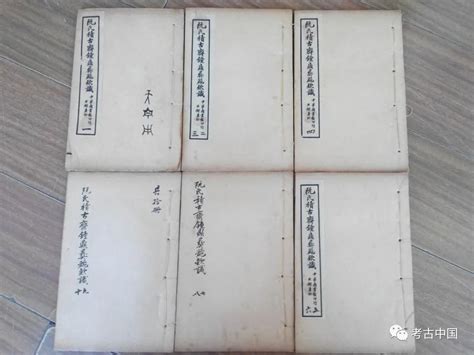 阮氏積古齋鐘鼎彝器款識
一
阮氏積古齋鐘鼎彝器款識
三二
阮氏積古齋鐘鼎彝器款識
四
共拾冊
阮氏積古齋鐘鼎彝器款識
十九
阮氏積古齋鐘鼎彝器款識
八七
阮氏積古齋鐘鼎彝器款識
六五
考古中国